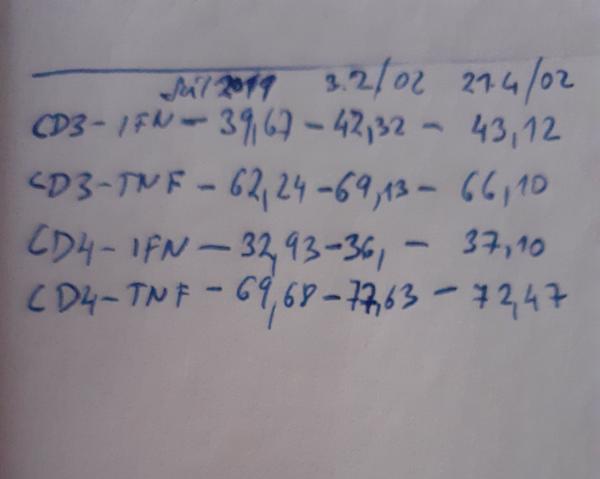 2019 3.2/02 21.4/02
CD3-IFN - 39,67 - 42,32 - 43,12
CD3-TNF - 62,24 - 69,13 - 66,10
CD4-IFN - 32,93 - 36, - 37,10
CD4-TNF - 69,68 - 77,63 - 72,47